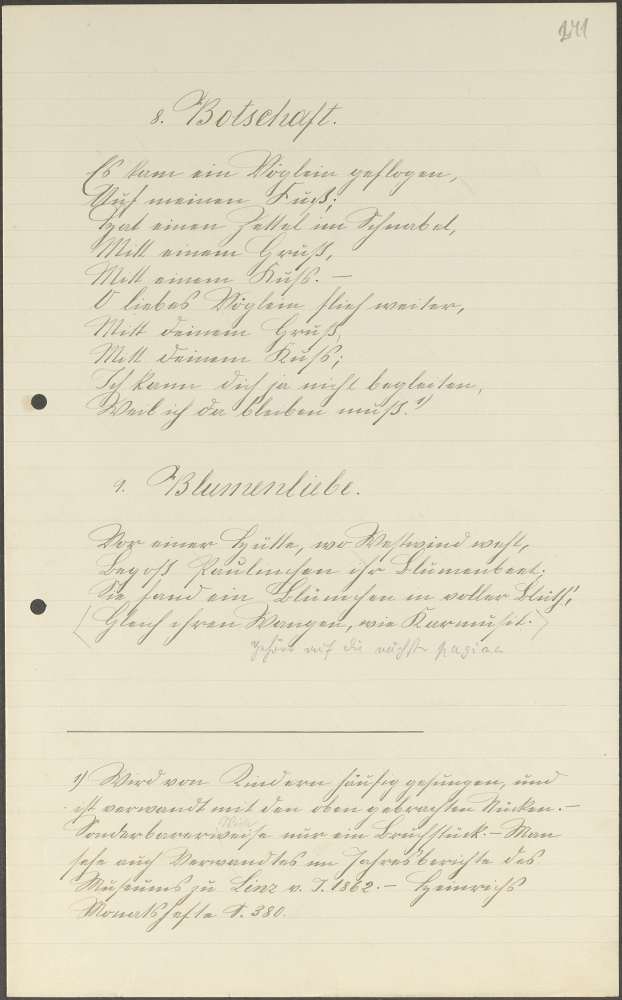 241
8. Botschaft.
Es kam ein Vöglein geflogen,
Auf meinen Fuß;
Hat einen Zettel im Schnabel,
Mitt einem Gruß,
Mitt einem Kuß. —
O liebes Vöglein flieh weiter,
Mitt deinem Gruß,
Mitt deinem Kuß;
Ich kann dich ja nicht begleiten,
Weil ich da bleiben muß. 1)
9. Blumenliebe.
Vor einer Hütte, wo Westwind weht,
Begoß Paulinchen ihr Blumenbeet;
Sie fand ein Blümchen in voller Blüth',
(Gleich ihren Wangen, wie Karmüsit.)
gehört auf die nächste pagina
1) Wird von Kindern häufig gesungen, und
ist verwandt mit den oben gebrachten Stücken. —
Sonderbarerweise nur ein Bruchstück. — Man
sehe auch Verwandtes im Jahresberichte des
Museums zu Linz v. J. 1862. — Heinrichs
Monatshefte S. 380.